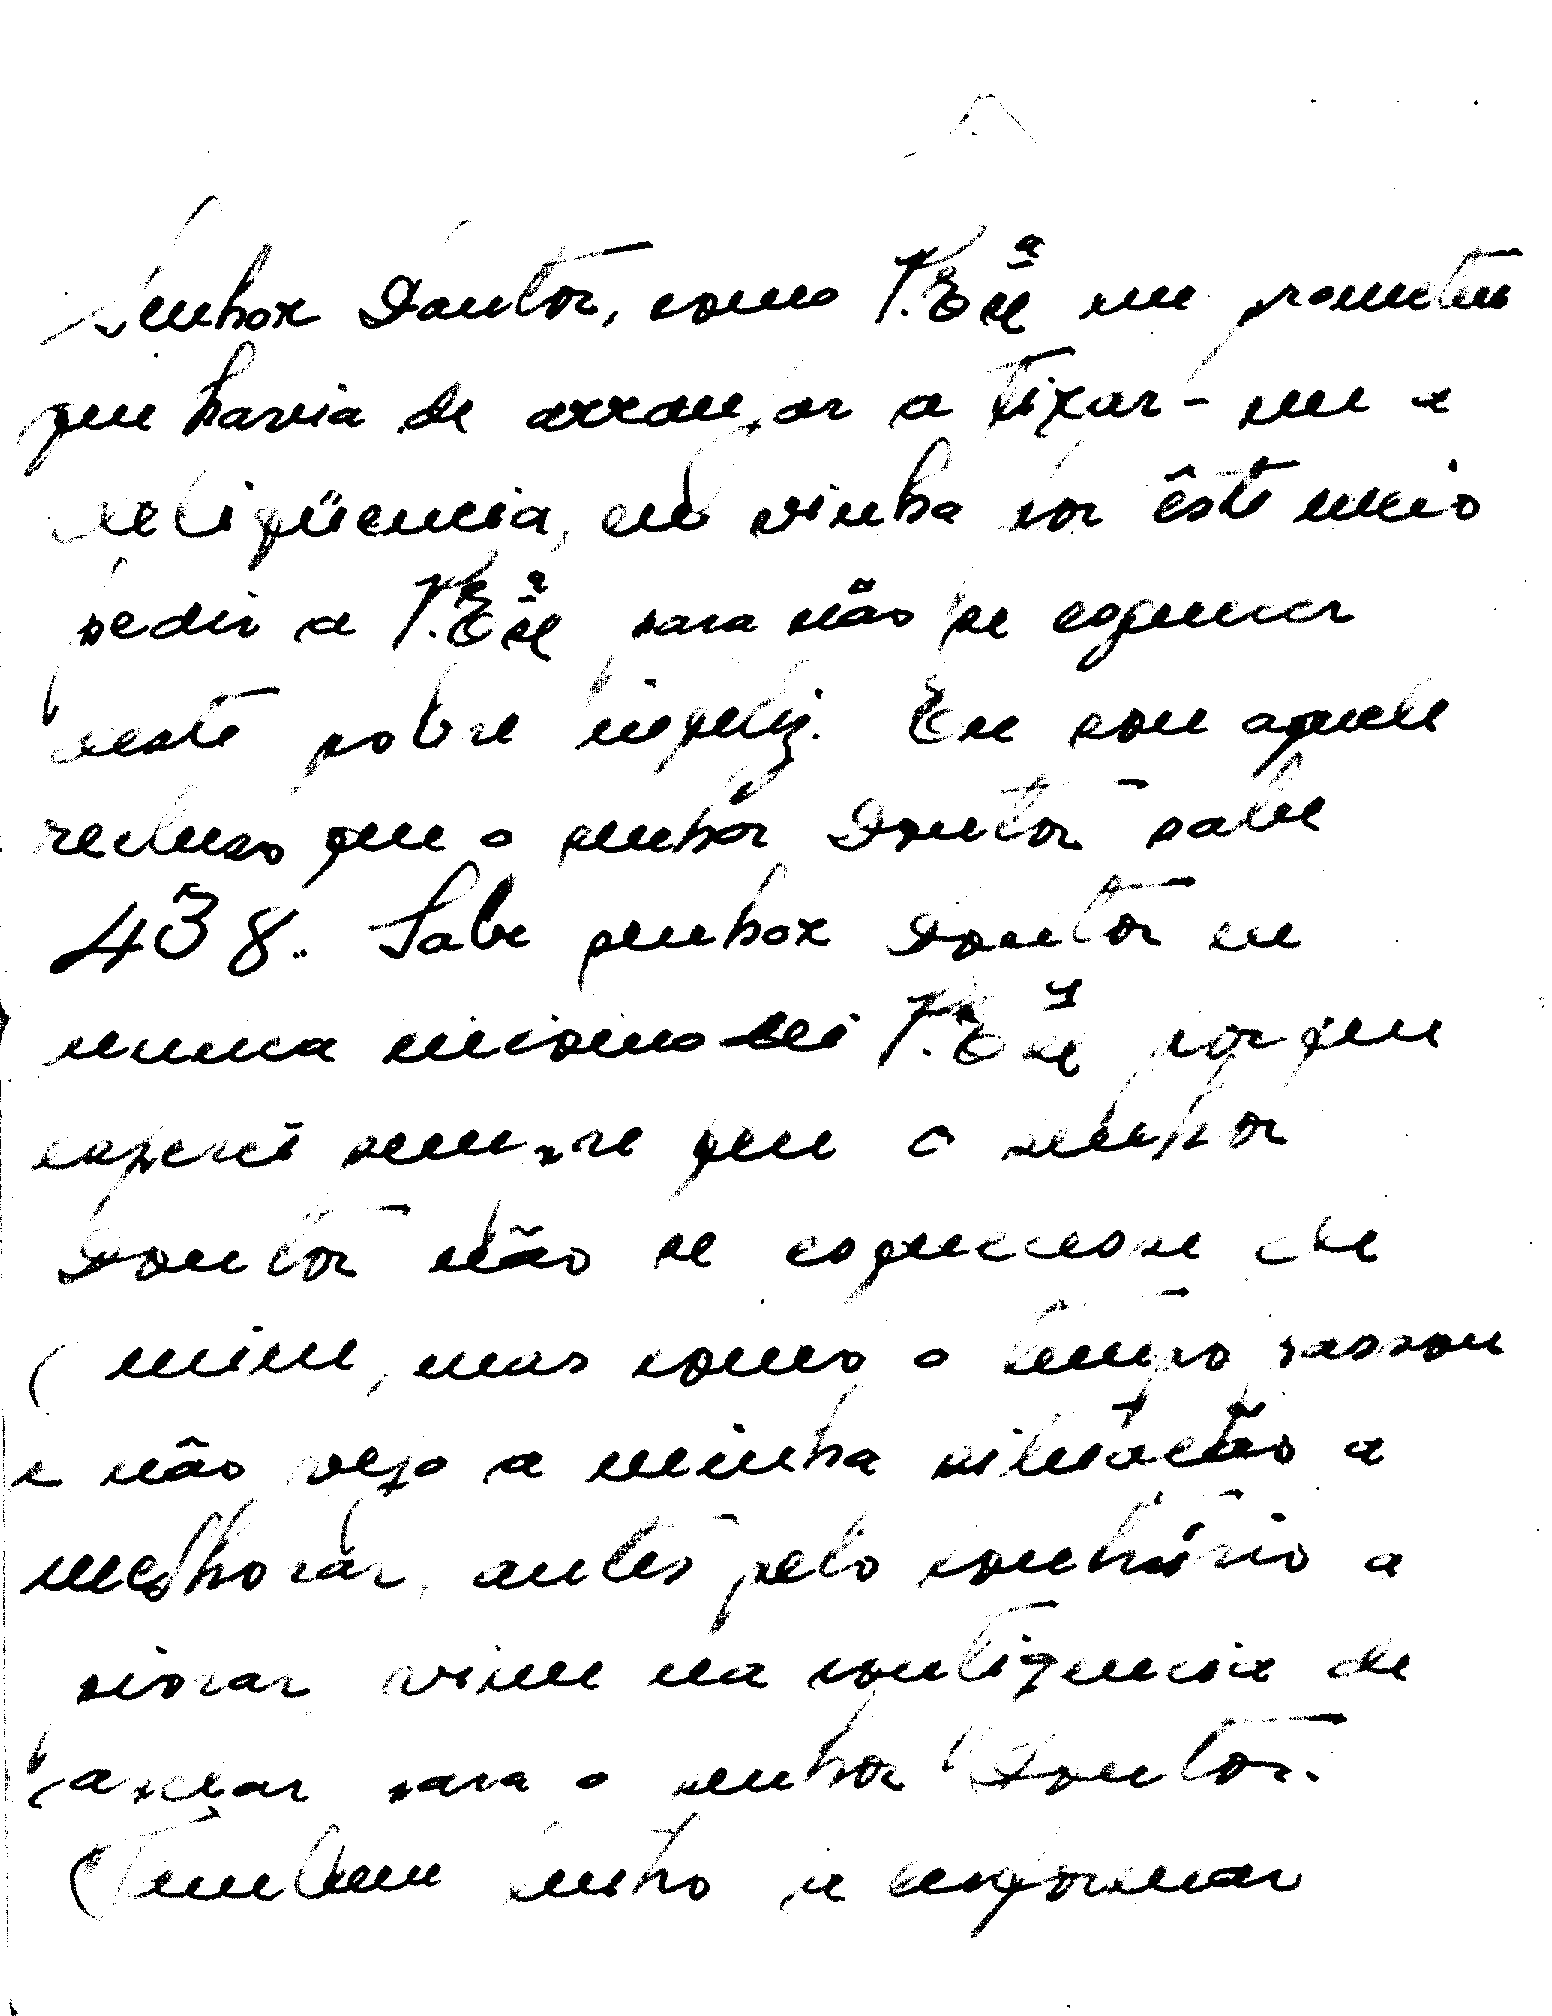 Senhor Doutor, como V. Exª me prometeu
que havia de arranjar a tirar-me a
delinqüencia, eu vinha por êste meio
pedir a V. Exª para não se esquecer
deste pobre infeliz. Eu sou aquele
recluso que o senhor Doutor sabe
438. Sabe senhor Doutor eu
nunca incomodei V. Exª porque
esperei sempre que o senhor
Doutor não se esquecesse de
mim, mas como o tempo passou
e não vejo a minha situação a
melhorar, antes pelo contrário a
piorar vim na contigencia de
apelar para o senhor Doutor.
Tembem tenho a informar